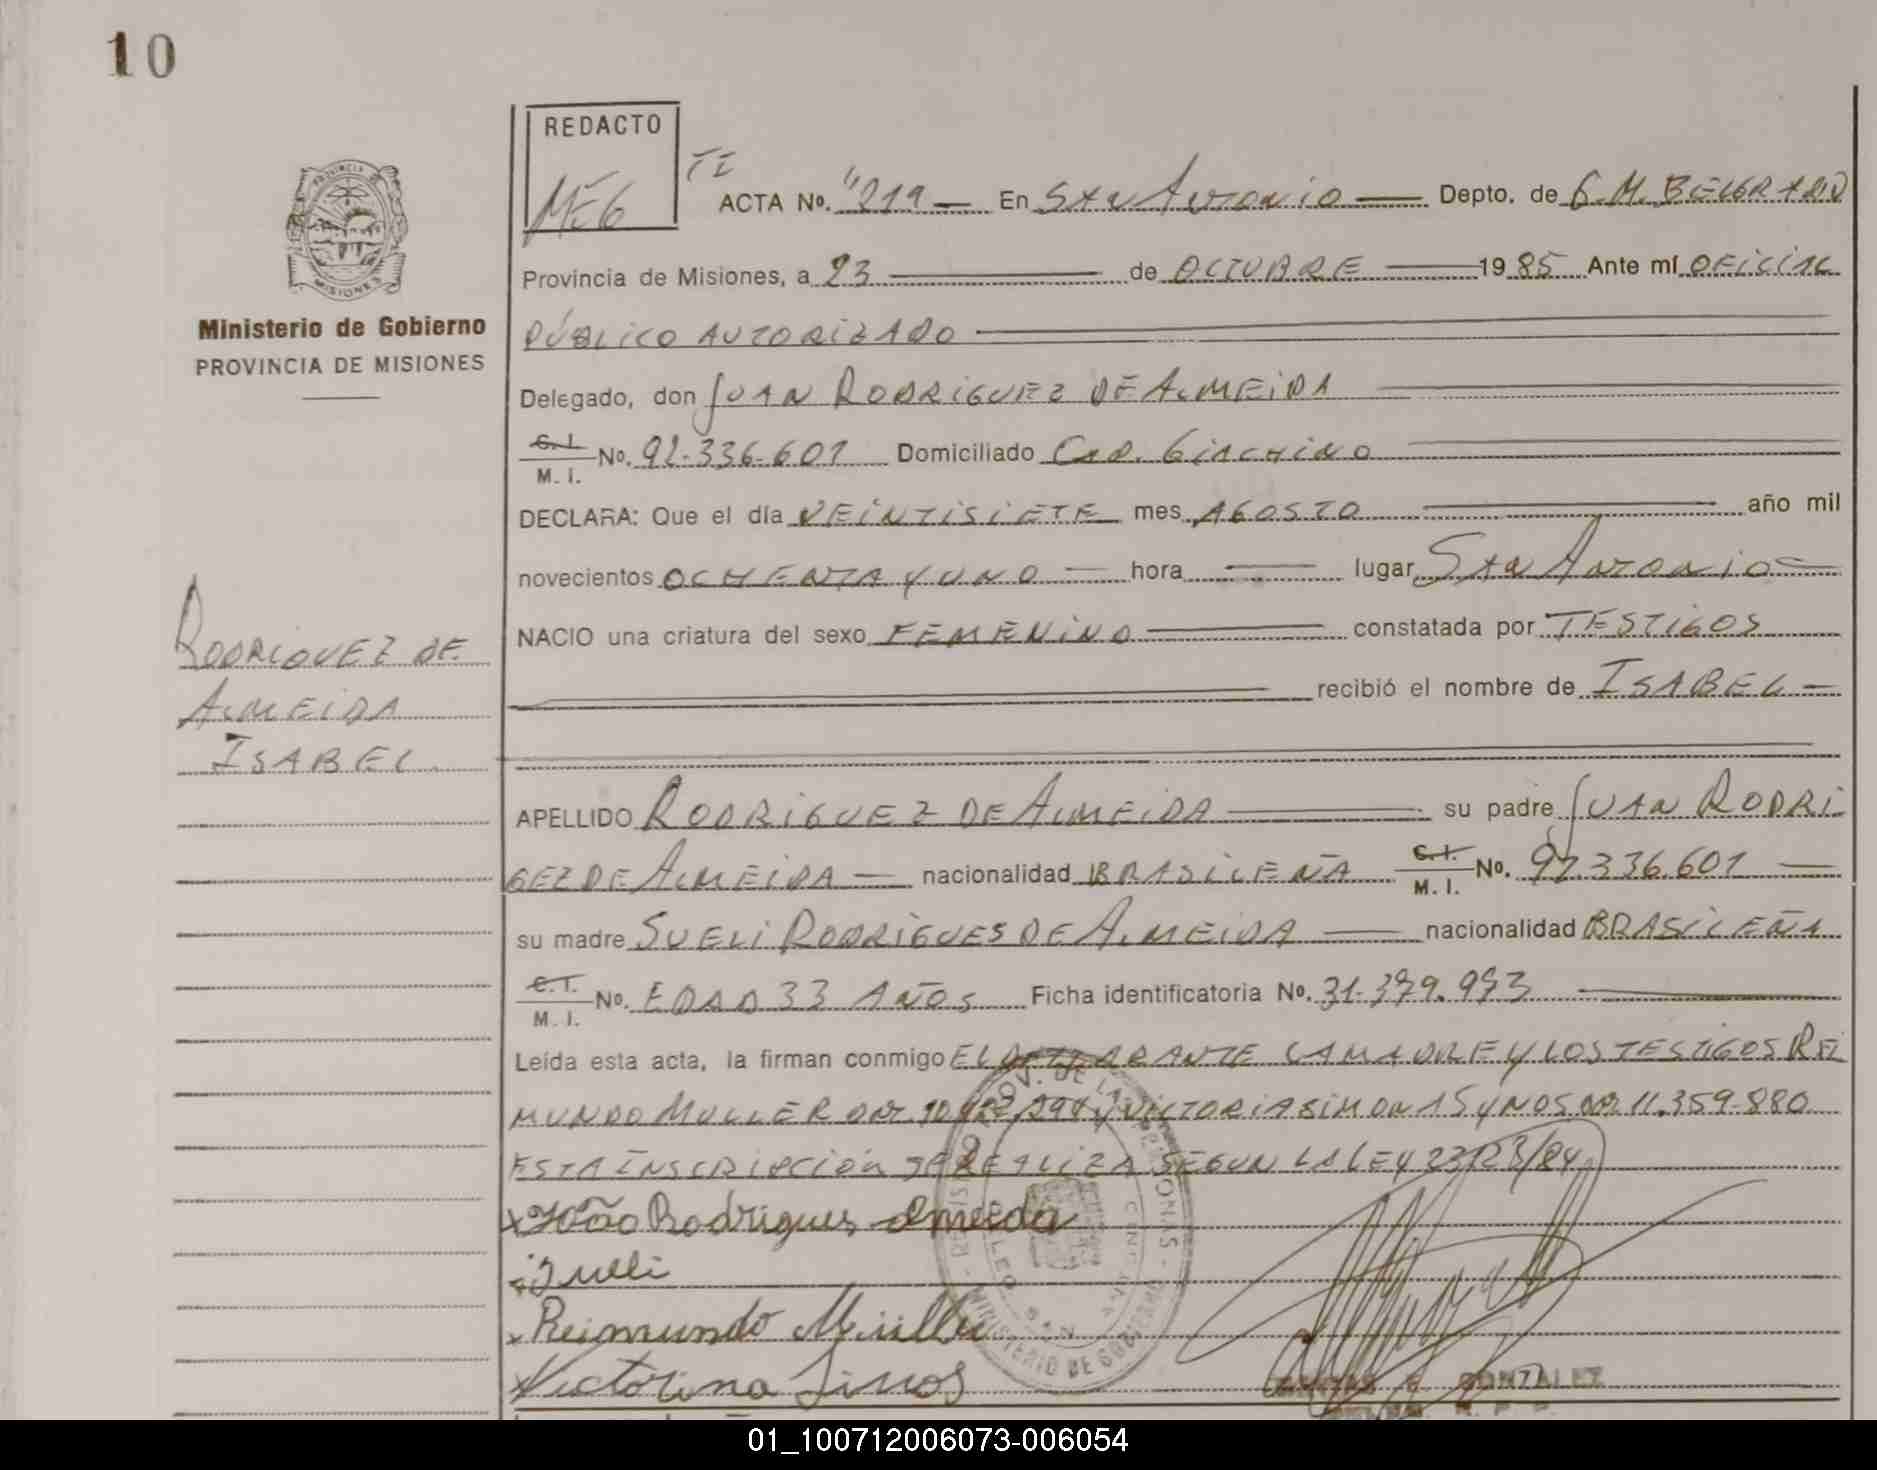 10
REDACTO
TI
ACTA Nº. "219 En SAN ANTONIO Depto. de G.M. BELGRANO
PROVINCIA DE
MISIONES
Provincia de Misiones, a 23 de OCTUBRE 1985 Ante mí OFICIAL
Ministerio de Gobierno
PÚBLICO AUTORIZADO
PROVINCIA DE MISIONES
Delegado, don JUAN RODRIGUEZ DE ALMEIDA
C. I.
M. I. No. 92.336.601 Domiciliado Cnd. GIACHINO
DECLARA: Que el día VEINTISIETE mes AGOSTO año mil
novecientos OCHENTA y UNO hora lugar SAN ANTONIO
NACIO una criatura del sexo FEMENINO constatada por TESTIGOS
RODRIGUEZ DE
recibió el nombre de ISABEL
ALMEIDA
ISABEL
APELLIDO RODRIGUEZ DE ALMEIDA su padre JUAN RODRI
GEZ DE ALMEIDA nacionalidad BRASILEÑA C. I. M. I. No. 92.336.601
su madre SUELI RODRIGUES DE ALMEIDA nacionalidad BRASILEÑA
C. I.
M. I. No. EDAD 33 AÑOS Ficha identificatoria No. 31.379.973
Leída esta acta, la firman conmigo EL DECLARANTE LA MADRE Y LOS TESTIGOS REI
MUNDO MULLER y VICTORIA SIMON 11.359.880
ESTA INSCRIPCIÓN SE REALIZA SEGUN LA LEY 23123/84
x João Rodrigues Almeida
Sueli
x Reimundo Muller
x Victorina
GONZALEZ
01_100712006073-006054